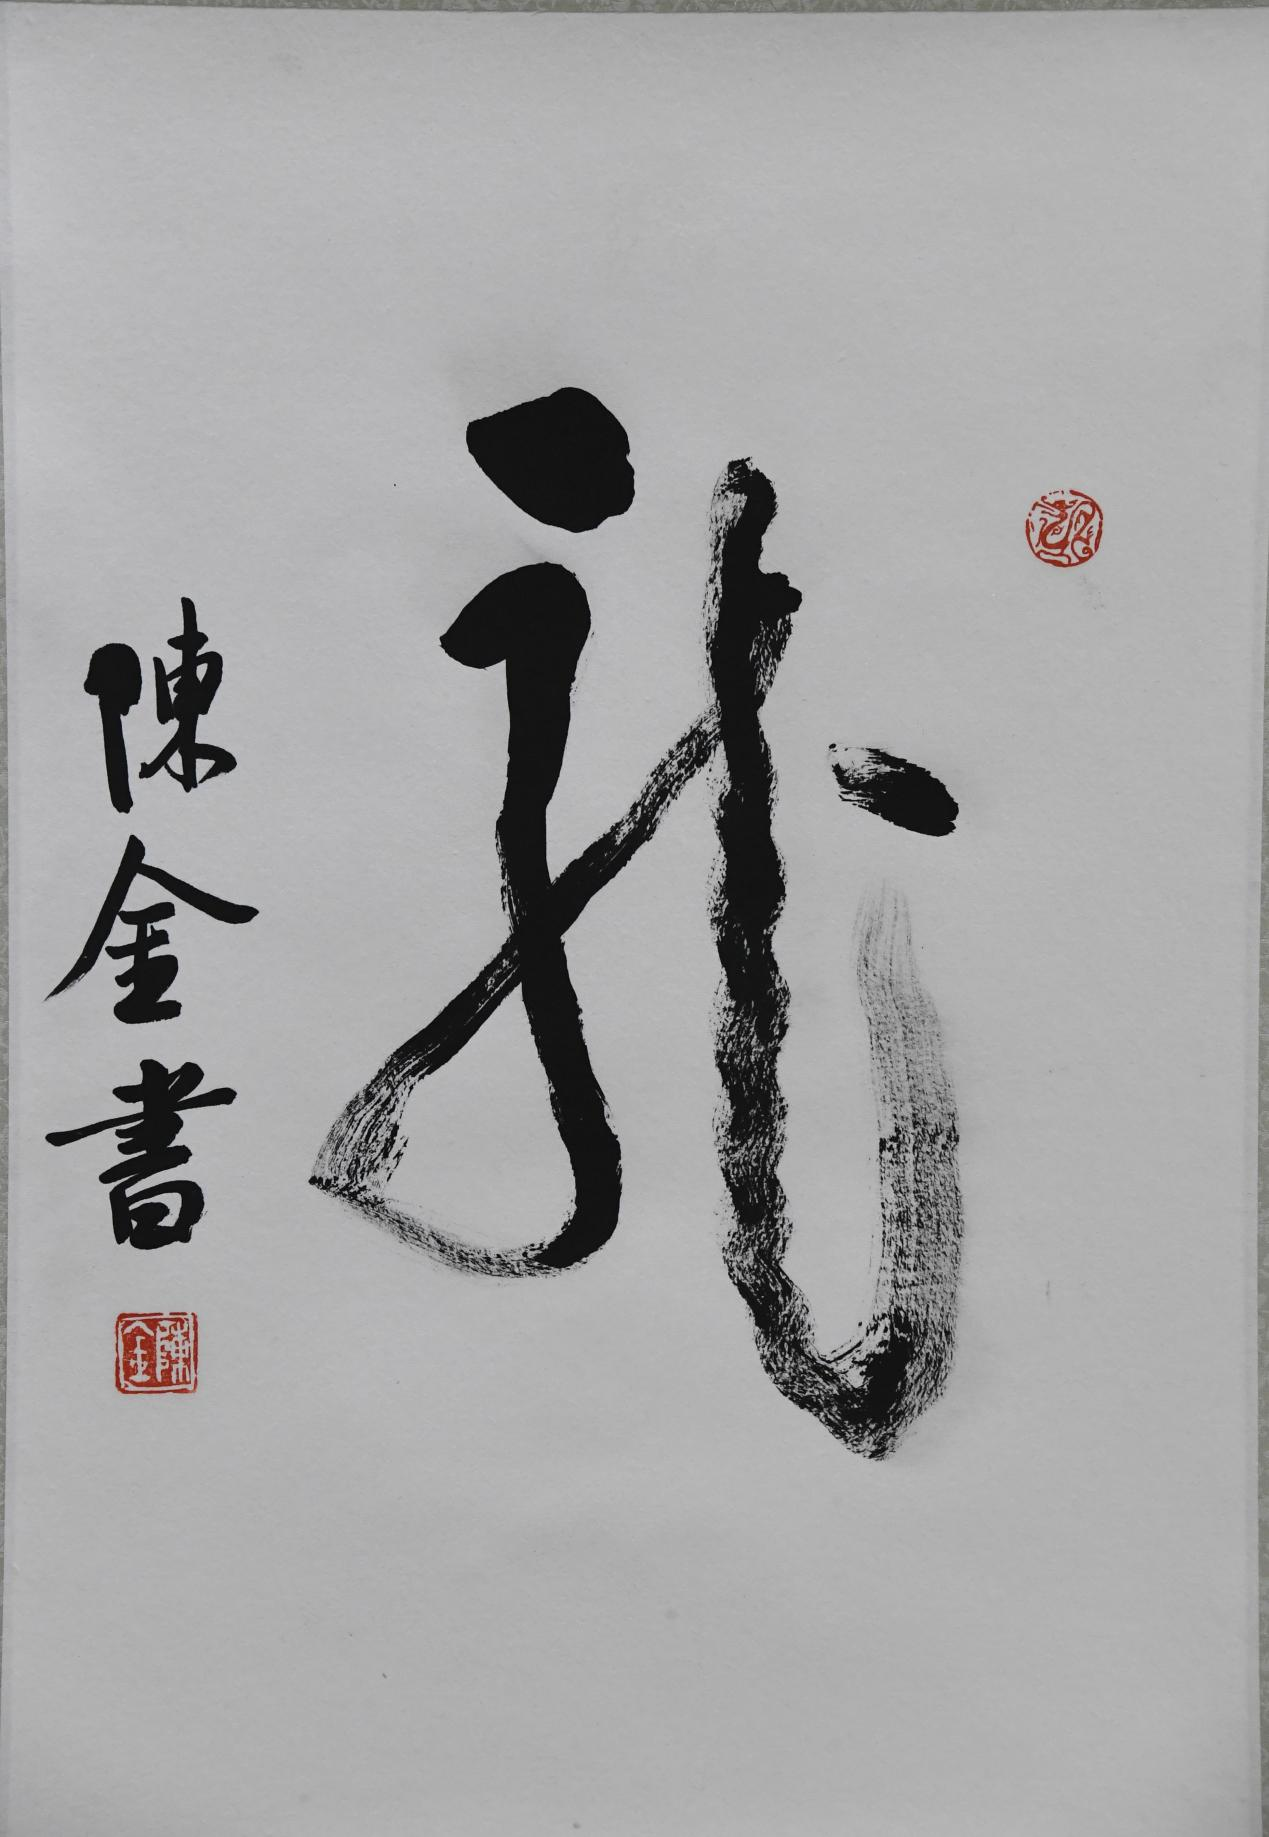 龍
陳金書
陳金